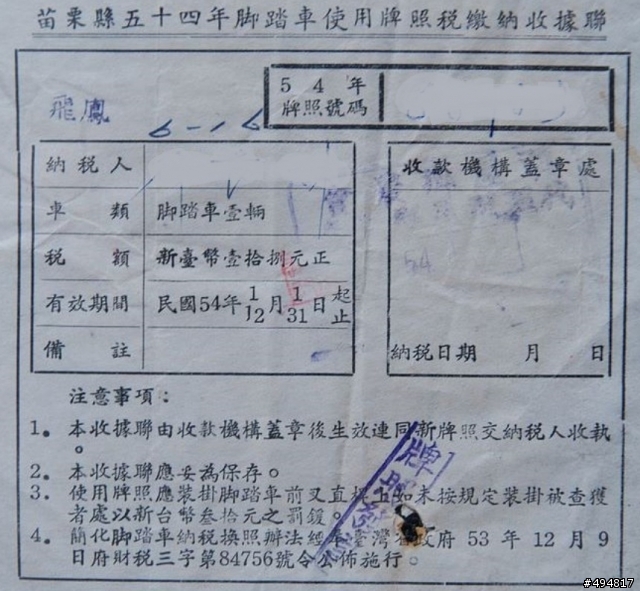 苗栗縣五十四年脚踏車使用牌照稅繳納收據聯
54年
牌照號碼
飛鳳
6-16
納稅人
車類 脚踏車壹輛
稅額 新臺幣壹拾捌元正
有效期間 民國54年1/12月1/31日起/止
備註
收款機構蓋章處
54
納稅日期 月 日
注意事項：
1. 本收據聯由收款機構蓋章後生效連同新牌照交納稅人收執
。
2. 本收據聯應妥為保存。
3. 使用牌照應裝掛脚踏車前叉直接上如未按規定裝掛被查獲
者處以新台幣叁拾元之罰鍰。
4. 簡化脚踏車納稅換照辦法經 臺灣省政府 53 年 12 月 9
日府財稅三字第84756號令公佈施行。
牌照
#494817